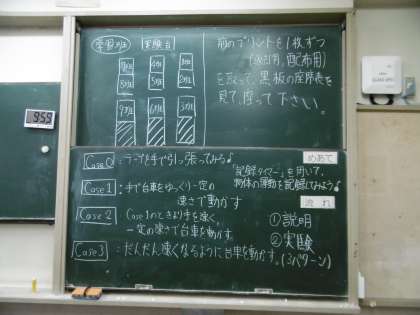 9:59
学習班
実験台
7班
8班
5班
6班
4班
3班
前のプリントを1枚ずつ
(収納用,配布用)
を取って、黒板の座席表を
見て、座って下さい。
めあて
「記録タイマー」を用いて、
物体の運動を記録してみよう♪
流れ
①説明
②実験
(3パターン)
Case0:テープを手で引っ張ってみる♪
Case1:手で台車をゆっくり一定の
速さで動かす
Case2:Case1のときより手を速く、
一定の速さで台車を動かす。
Case3:だんだん速くなるように台車を動かす。